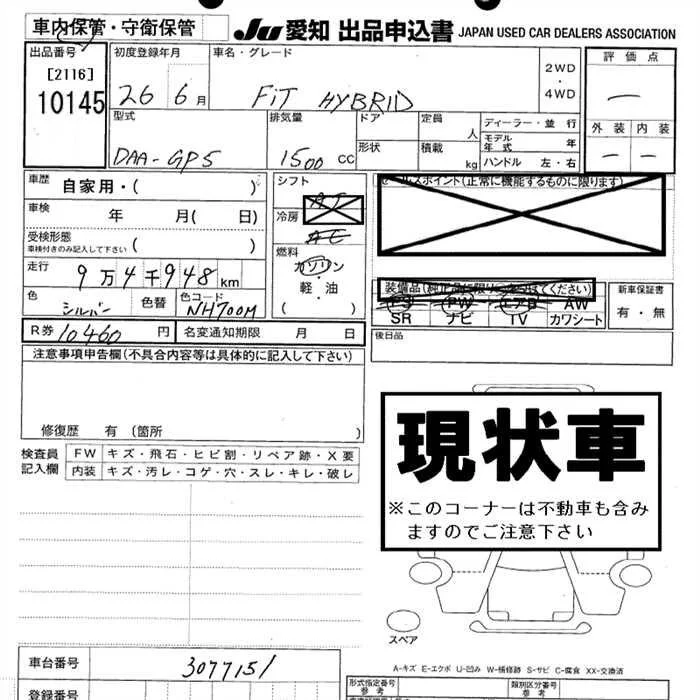 車内保管・守衛保管 JU 愛知 出品申込書 JAPAN USED CAR DEALERS ASSOCIATION
出品番号
[2116]
10145
初度登録年月
26 6月
車名・グレード
FIT HYBRID
2WD
・
4WD
評価点
―
外装 内装
― ―
型式
DAA-GP5
排気量
1500 CC
ドア
定員
人
形状
積載
kg
ディーラー・並行
モデル
年式 年
ハンドル 左・右
車歴 自家用・( )
車検 年 月( 日)
受検形態
車検付きのみ記入して下さい ( )
走行 9万4千948km
色 シルバー 色替 色コード NH700M
R券 10460 円 名変通知期限 月 日
シフト
AT
冷房
燃料
ガソリン
・
軽・油
( )
セールスポイント(正常に機能するものに限ります)
装備品
PS PW エアB AW
SR ナビ TV カワシート
新車保証書
有・無
後日品
注意事項申告欄(不具合内容等は具体的に記入して下さい)
修復歴 有(箇所 )
検査員
記入欄
FW キズ・飛石・ヒビ割・リペア跡・X要
内装 キズ・汚レ・コゲ・穴・スレ・キレ・破レ
現状車
※このコーナーは不動車も含み
ますのでご注意下さい
スペア
A-キズ E-エクボ U-凹み W-補修跡 S-サビ C-腐食 XX-交換済
車台番号 3077151
登録番号
形式指定番号
参考
類別区分番号
参考